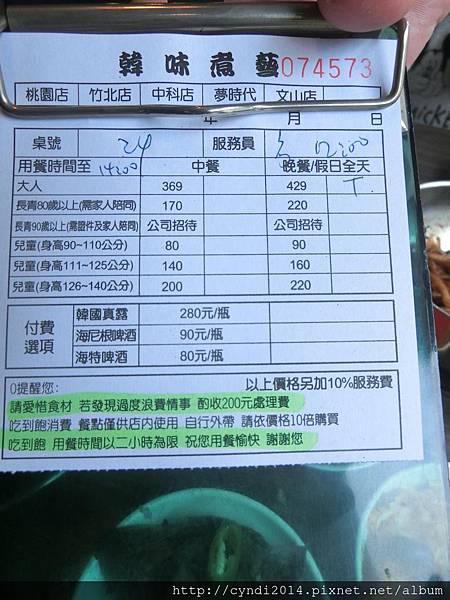 韓味煮藝 074573
桃園店 竹北店 中科店 夢時代 文山店
年 月 日
桌號 24 服務員 12:00
用餐時間至 14:00 中餐 晚餐/假日全天
大人 369 429 T
長青80歲以上(需家人陪同) 170 220
長青90歲以上(需證件及家人陪同) 公司招待 公司招待
兒童(身高90~110公分) 80 90
兒童(身高111~125公分) 140 160
兒童(身高126~140公分) 200 220
付費選項
韓國真露 280元/瓶
海尼根啤酒 90元/瓶
海特啤酒 80元/瓶
0提醒您: 以上價格另加10%服務費
請愛惜食材 若發現過度浪費情事 酌收200元處理費
吃到飽消費 餐點僅供店內使用 自行外帶 請依價格10倍購買
吃到飽 用餐時間以二小時為限 祝您用餐愉快 謝謝您
http://cyndi2014.pixnet.net/album